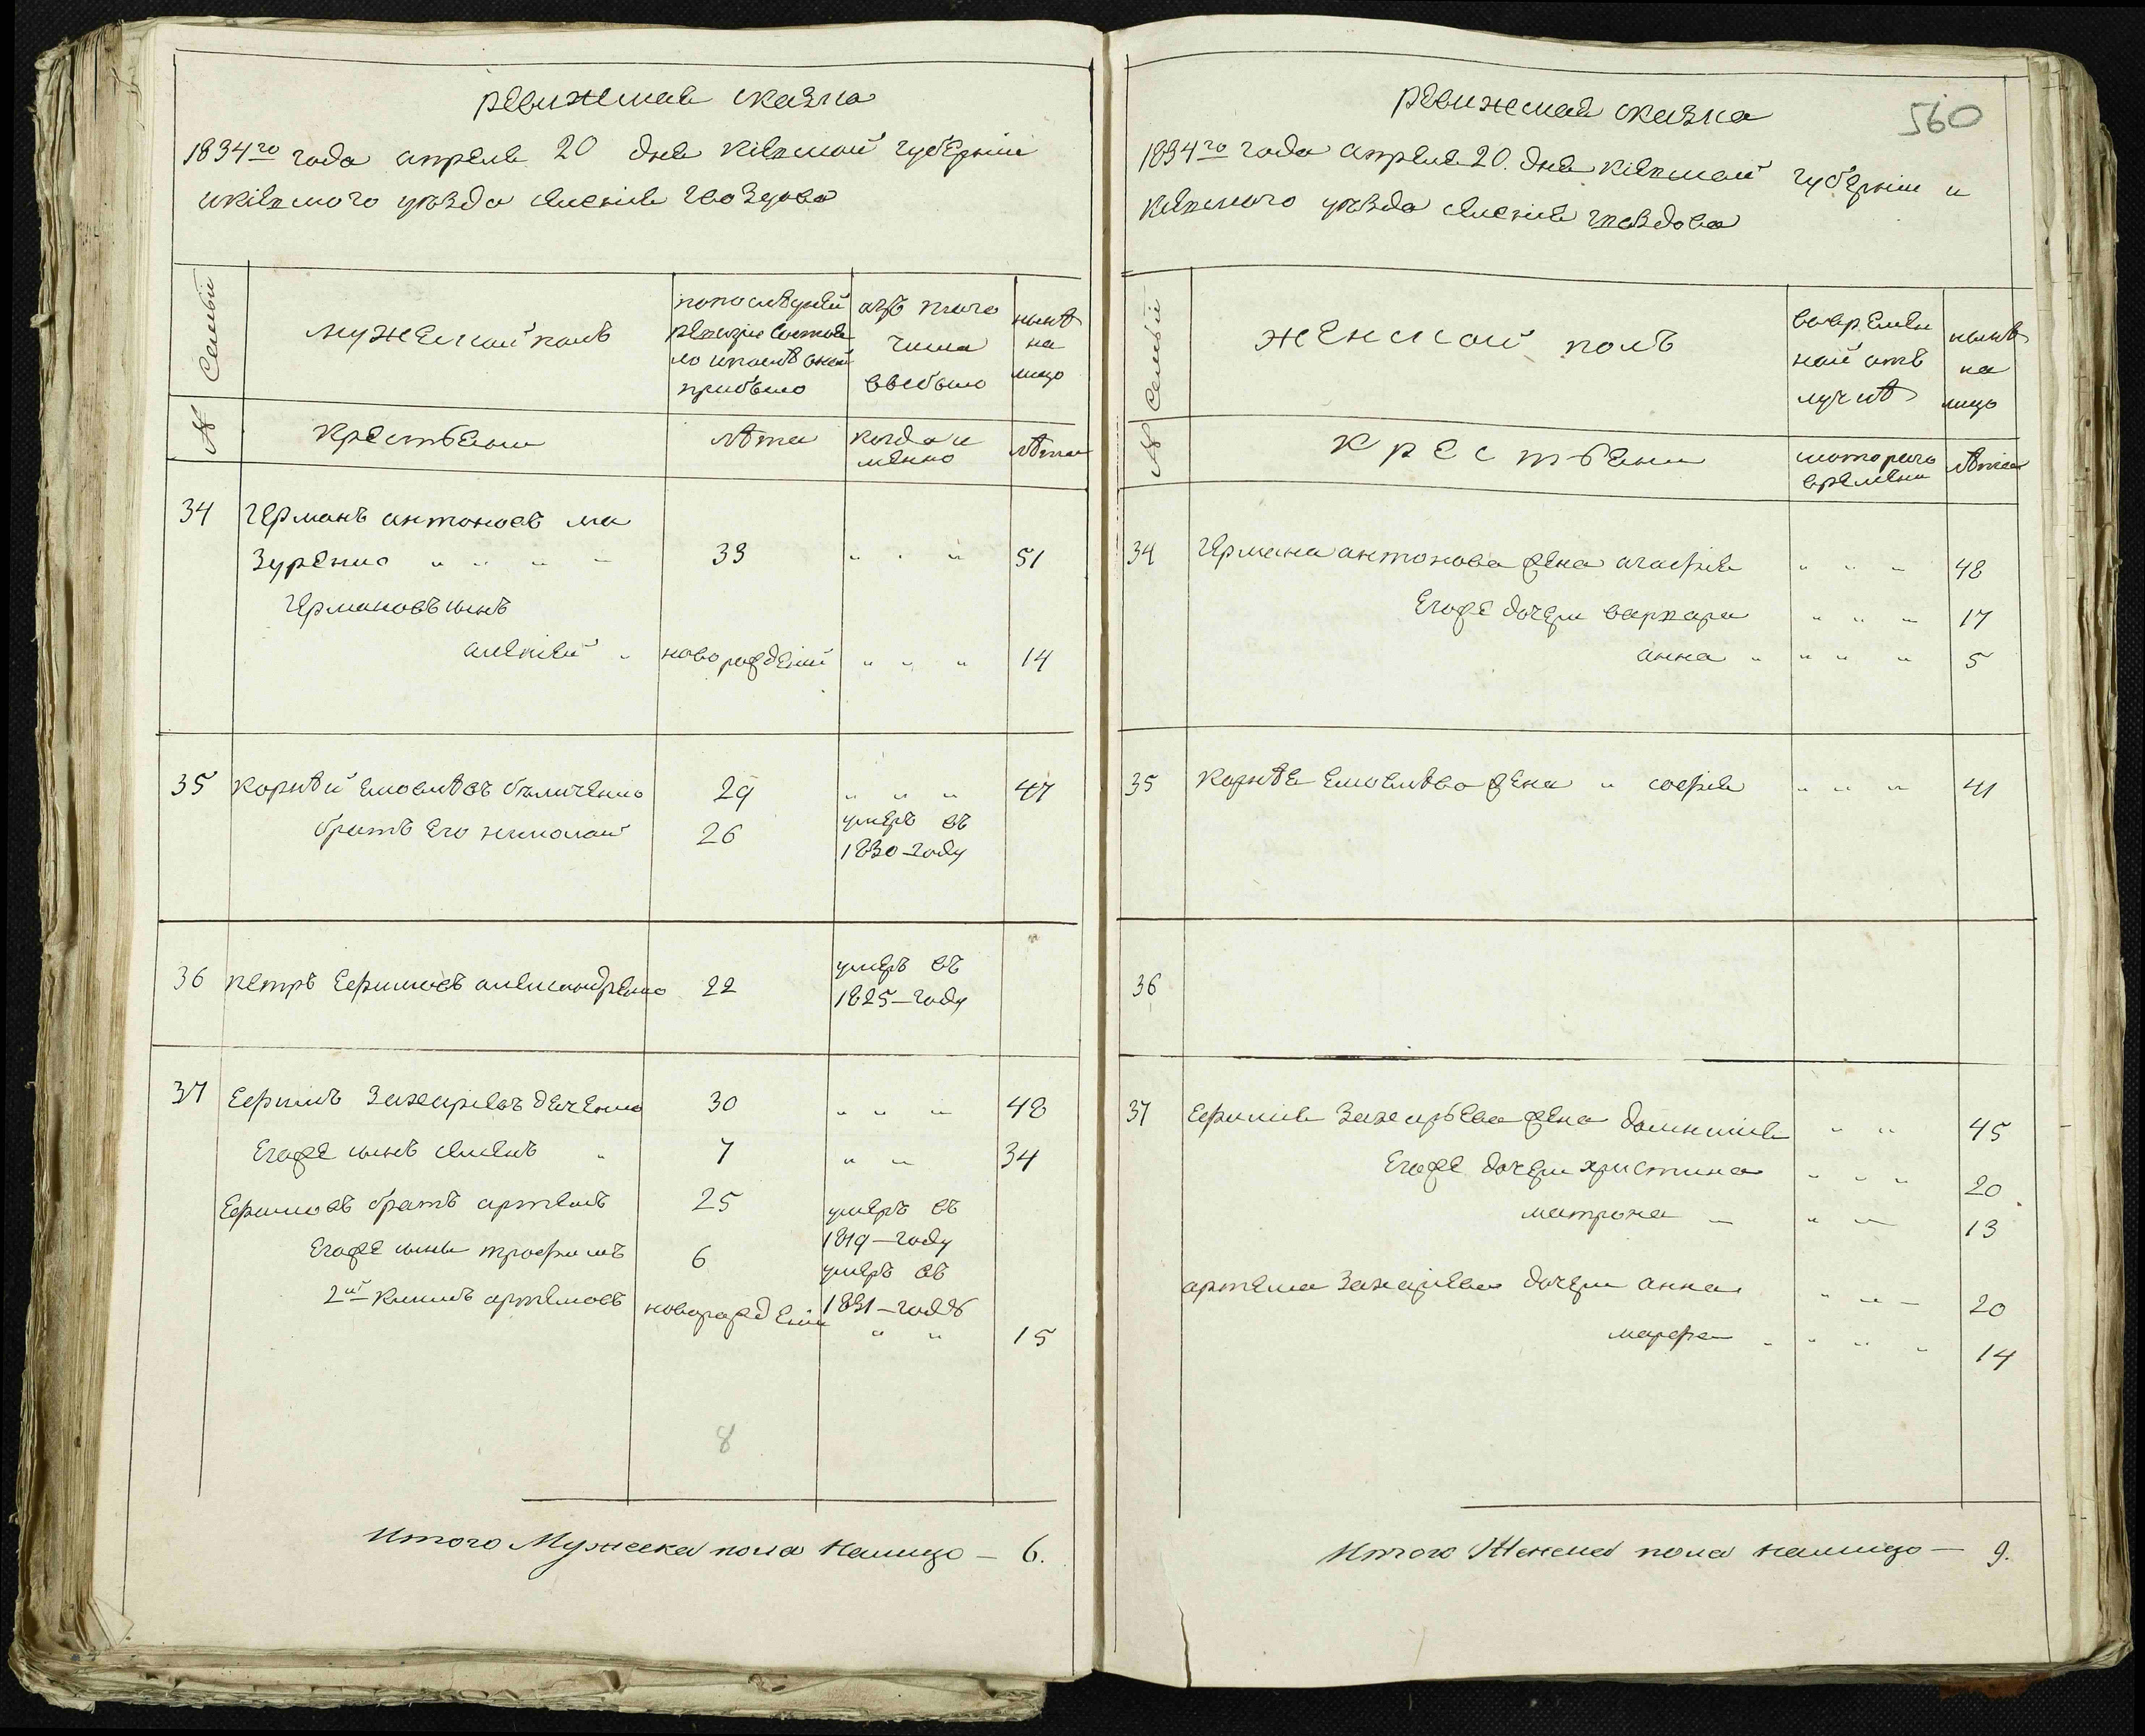 ревижская сказка
1834го года апреля 20 дня киевской губернии
и киевского уезда селения Гвоздова
Семьи
мужеской полъ
попоследней
ревизии состоя
ло ипослѣ оной
прибыло
изъ того
числа
выбыло
нынѣ
на
лицо
№
крестьяни
лѣта
когда и
мянно
лѣта
34 Германъ антоновъ ма
зуренко " " " " 33 " " " 51
Германовъ сынъ
алексей " новорождений " " " 14
35 корнѣй емовлѣвъ бѣличенко 29 " " " 47
братъ его николай 26 умеръ въ
1830 году
36 петръ ефимовъ александренко 22 умеръ въ
1825 году
37 ефимъ захариевъ дяченко 30 " " " 48
егоже сынъ семенъ " 7 " " 34
ефимовъ братъ артемъ 25 умеръ въ
1819 году
егоже сыны трофимъ 6 умеръ въ
1831 годѣ
2й климъ артемовъ новорожденій " " 15
8
Итого Мужеска пола налицо — 6.
560
ревижская сказка
1834го года апреля 20. дня киевской губернии и
киевского уезда селения гвоздова
Семьи
женской полъ
вовремен
ной отъ
лучкѣ
нынѣ
на
лицо
№
крестьяни
скоторого
времени
лѣта
34 Германа антонова жена агафия " " " 48
егоже дочери варвара " " " 17
анна " " " " 5
35 корнѣя емовлѣва жена " софия " " " 41
36
37 ефима захарьева жена домникия " " 45
егоже дочери христина " " " 20
матрона " " " 13
артема захариева дочери анна " " " 20
марфа " " " " 14
Итого Женска пола налицо — 9.